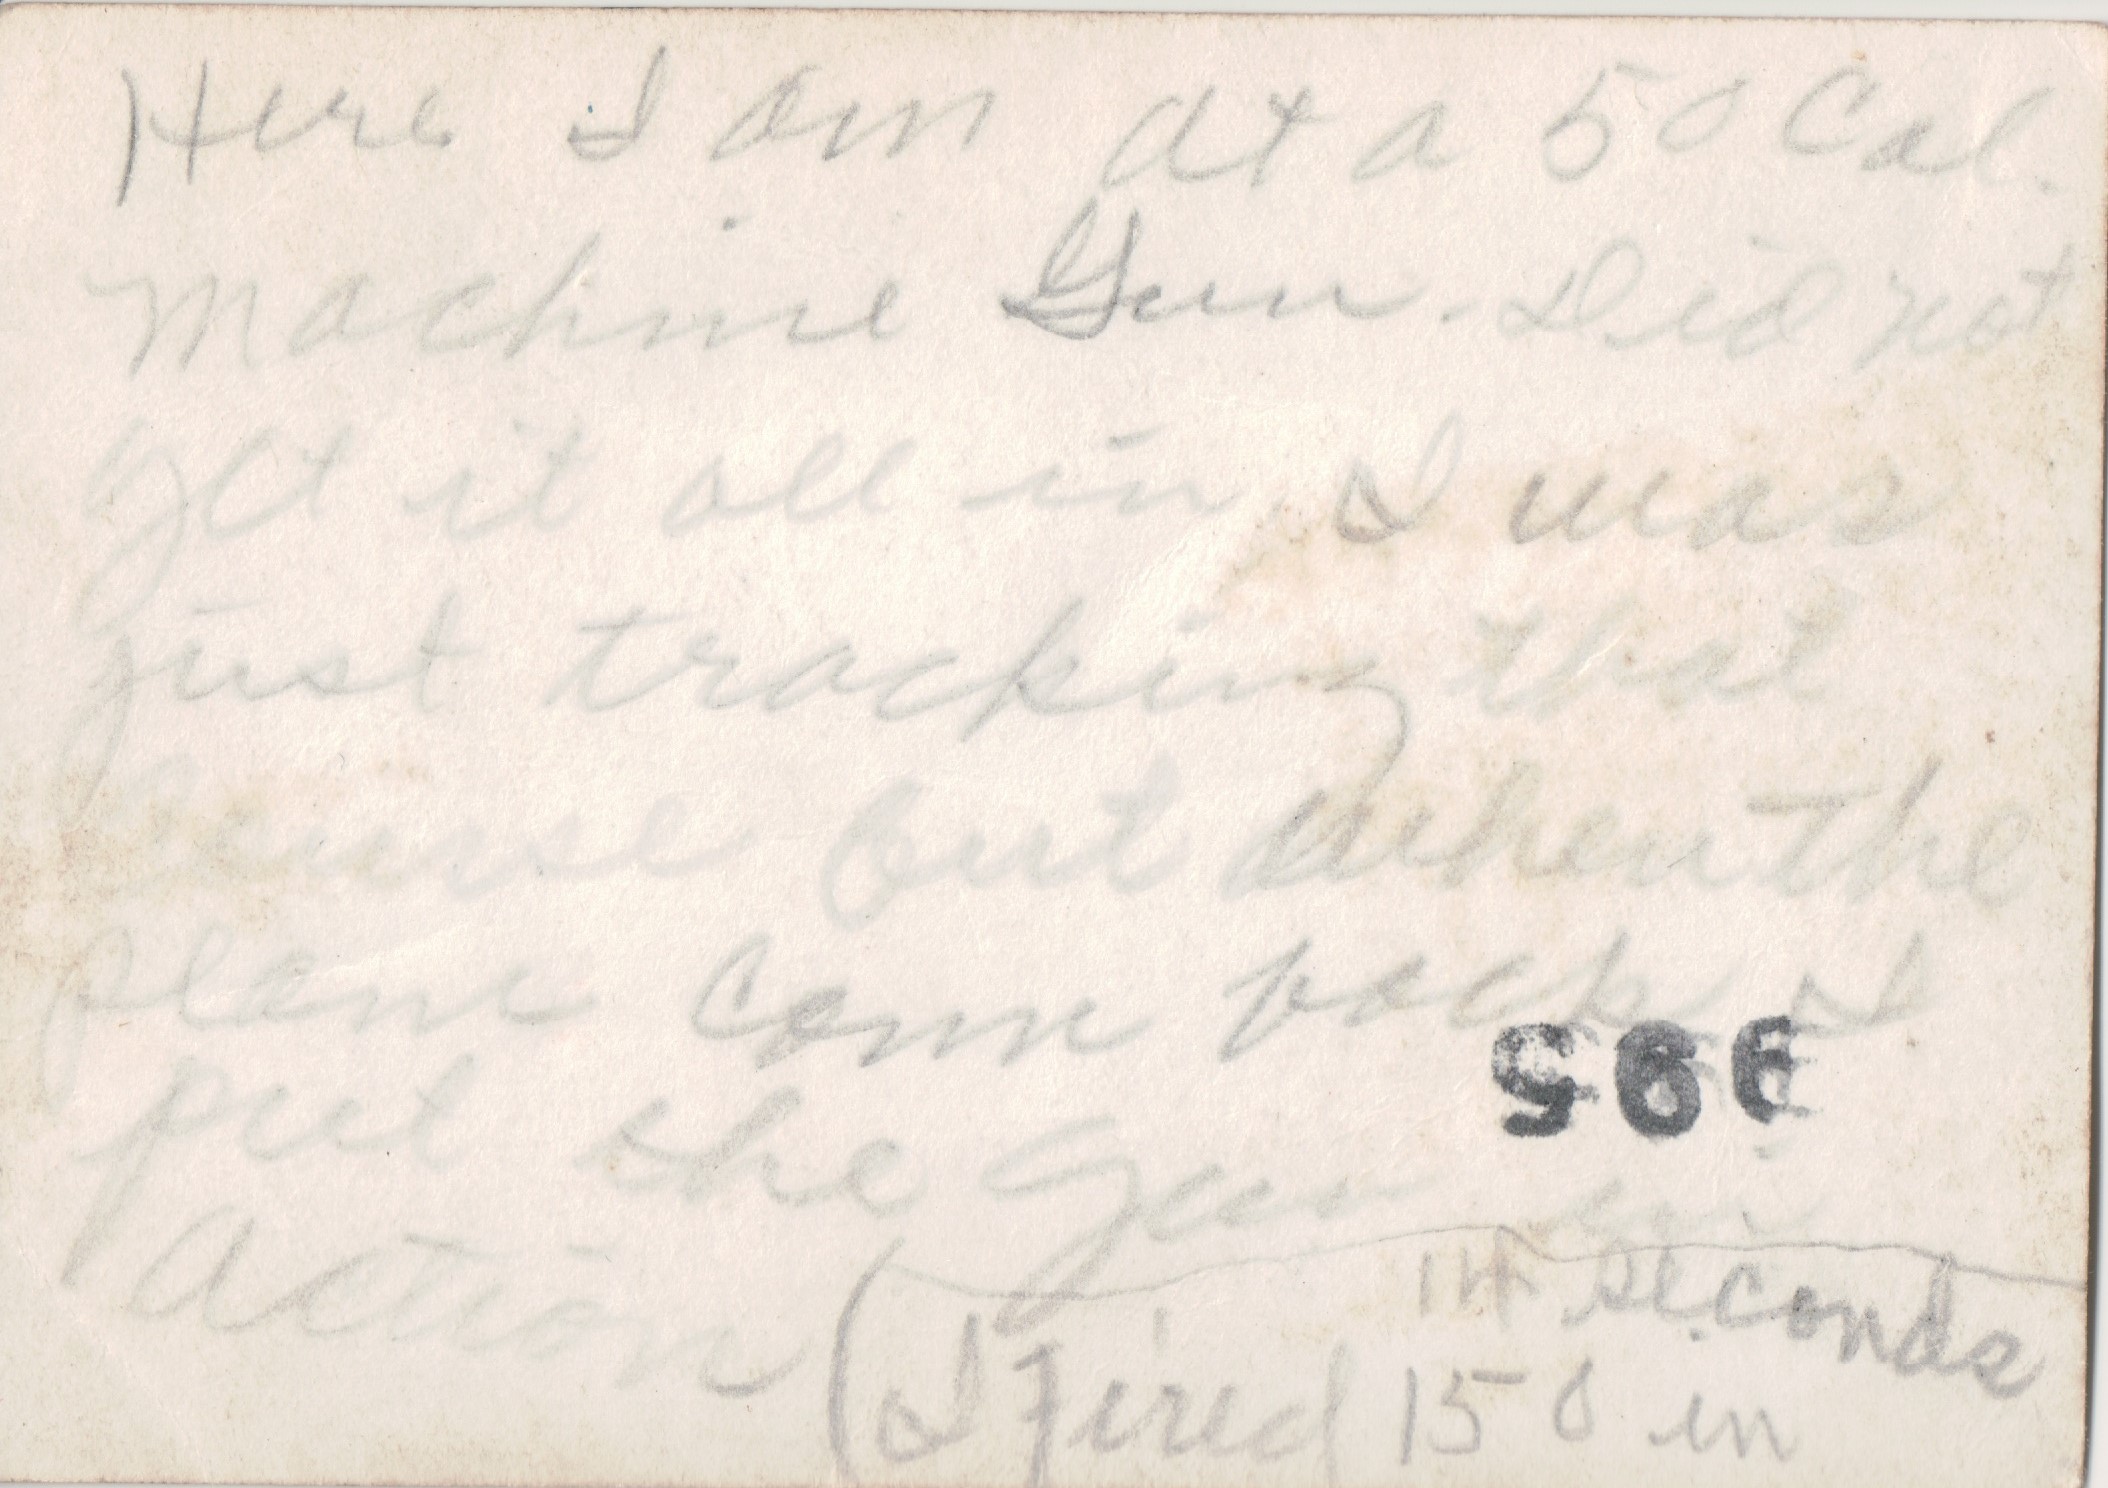 Here I am at a 50 Cal.
Machine Gun. Did not
get it all in I was
just tracking that
but when the
plane come back I
put the gun in
action
(I fired 150 in
14 seconds